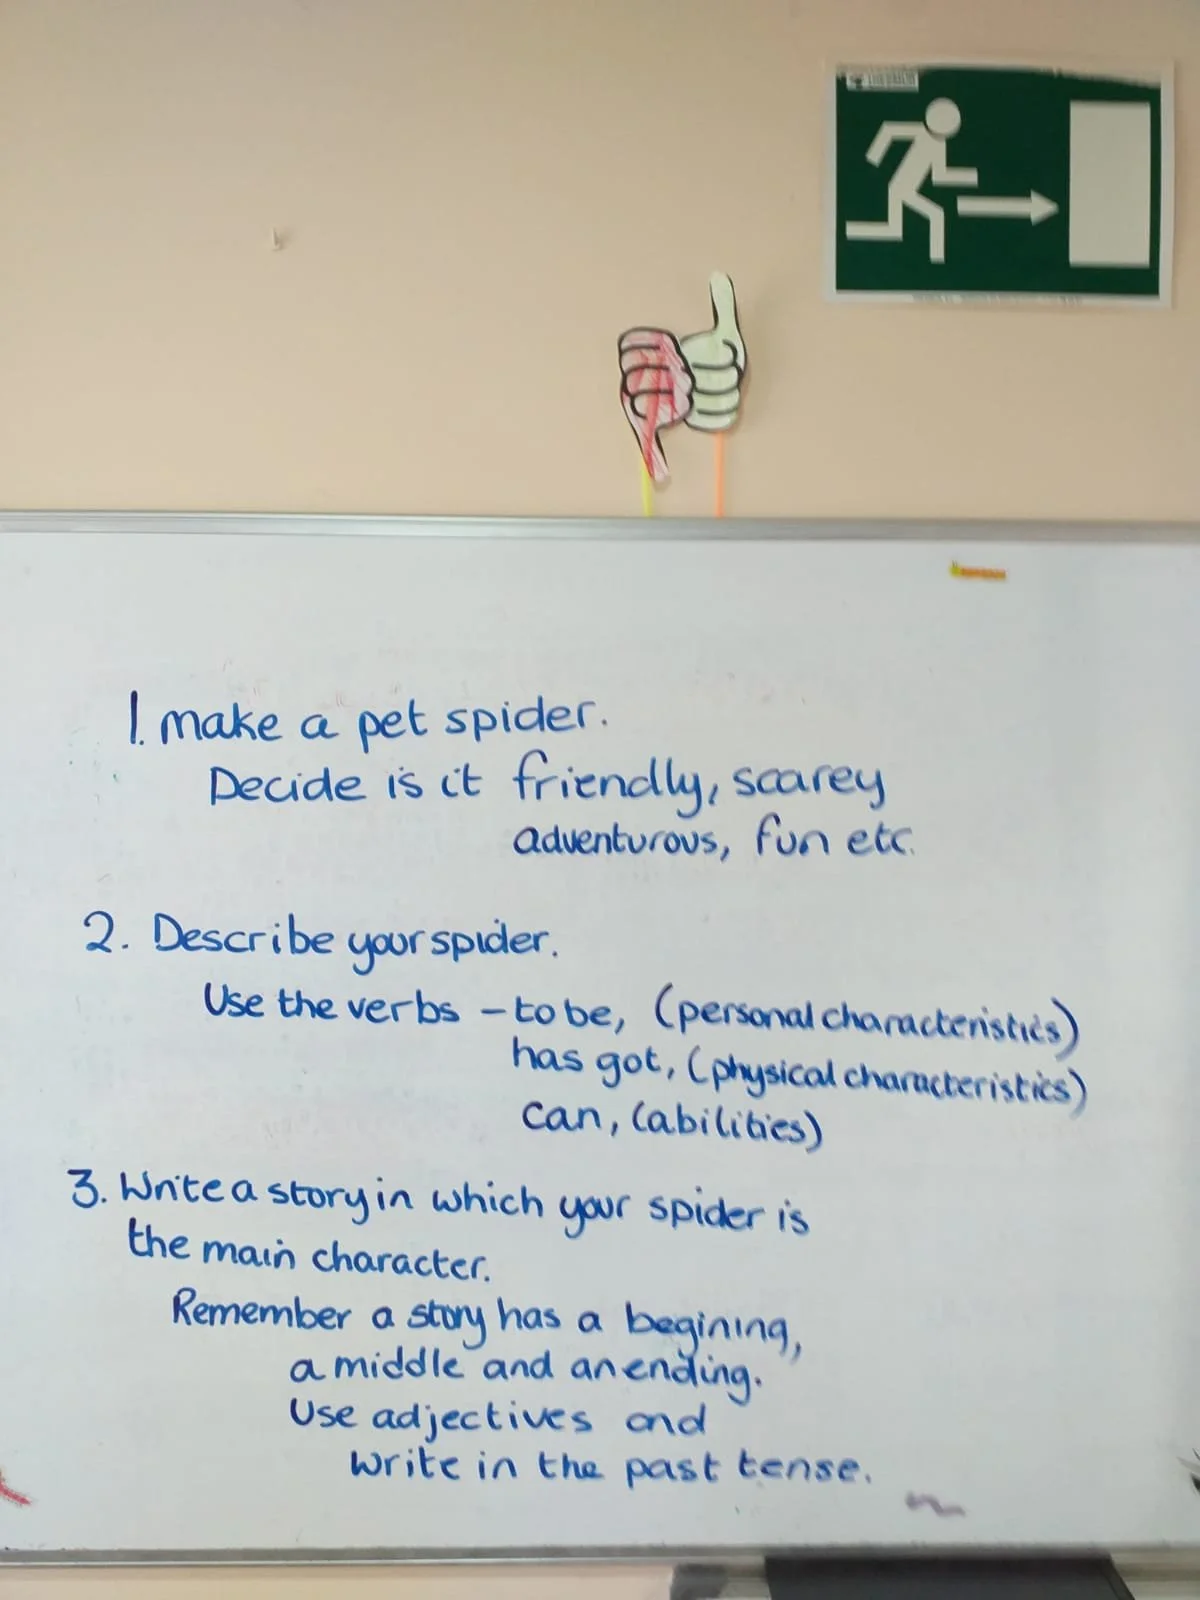 1. make a pet spider.
Decide is it friendly, scarey
adventurous, fun etc.
2. Describe your spider.
Use the verbs - to be, (personal characteristics)
has got, (physical characteristics)
can, (abilities)
3. Write a story in which your spider is
the main character.
Remember a story has a begining,
a middle and an ending.
Use adjectives and
write in the past tense.